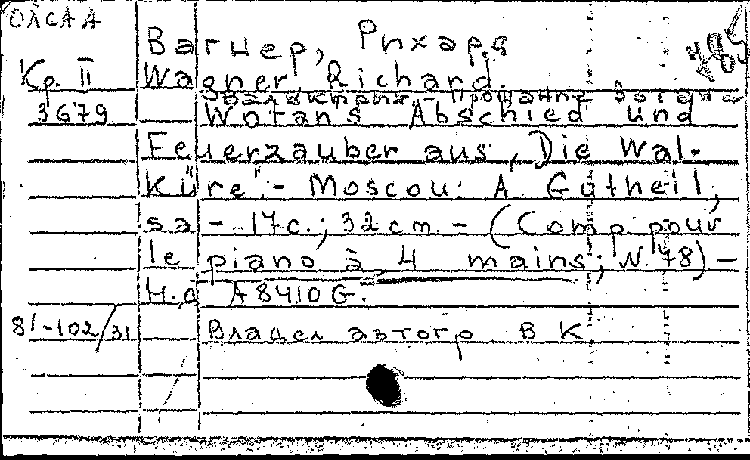 ОЛСАА
Вагнер, Рихард
Кр. II Wagner, Richard.
3679 Wotans Abschied und
Feuerzauber aus „Die Wal-
küre". - Moscou: A. Gutheil,
s.a. - 17 c.; 32 cm. - (Comp. pour
le piano à 4 mains; N. 78) -
Н.д. A 8410 G.
81-102/31 Владел. автогр. В. К.